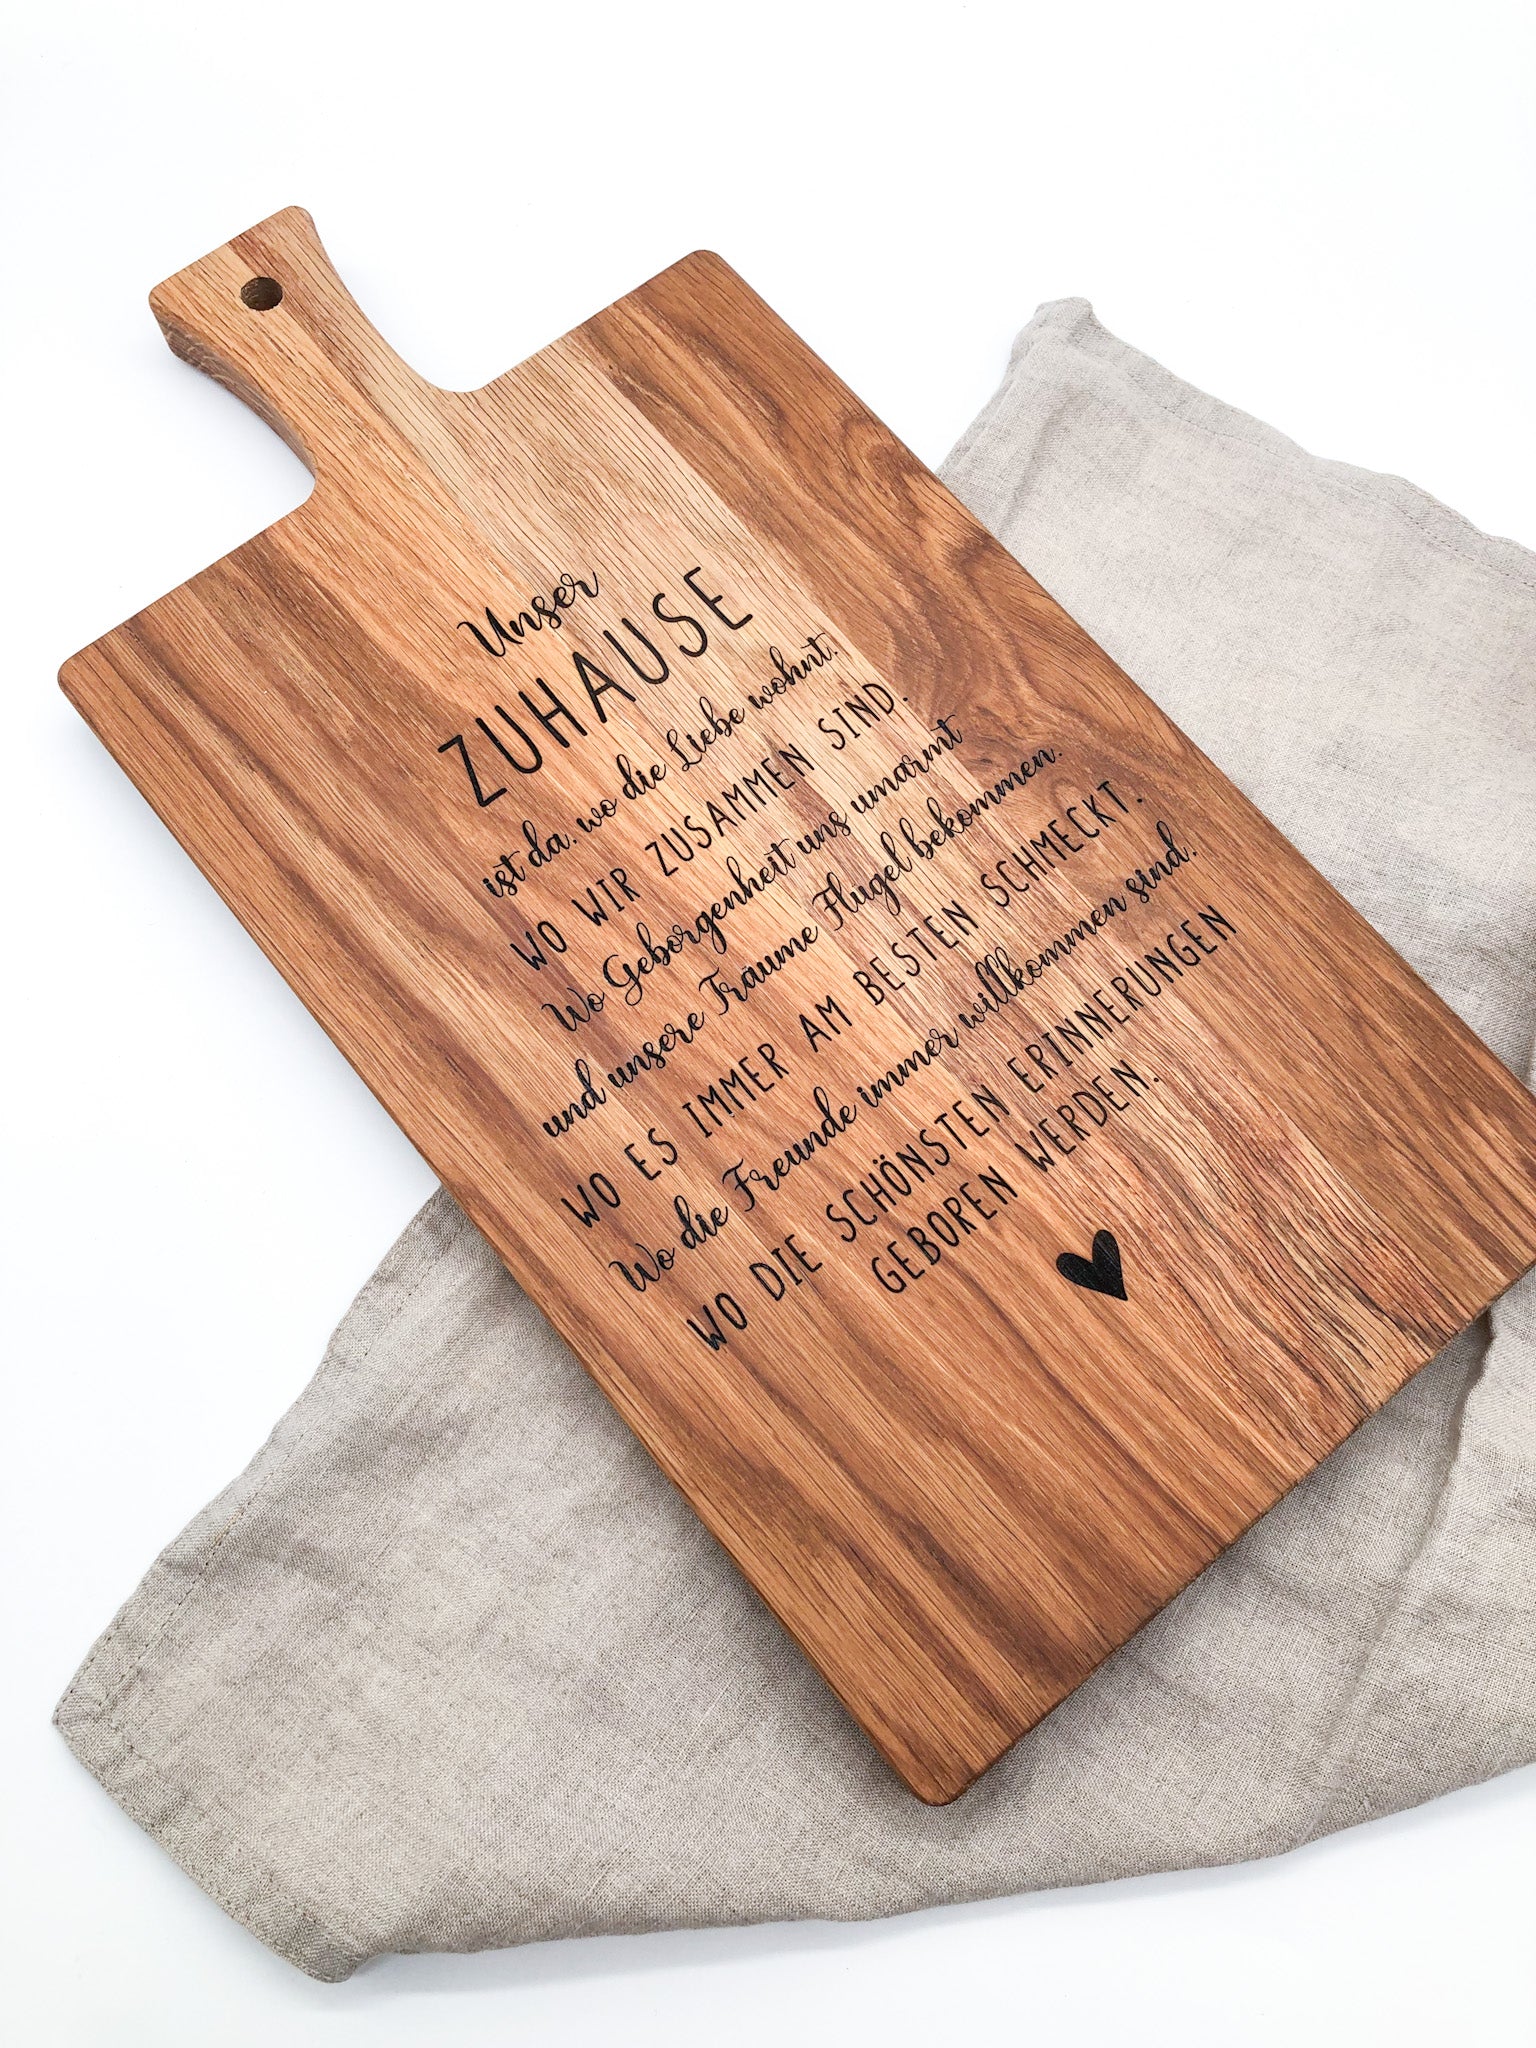 Unser
ZUHAUSE
ist da, wo die Liebe wohnt.
WO WIR ZUSAMMEN SIND.
Wo Geborgenheit uns umarmt
und unsere Träume Flügel bekommen.
WO ES IMMER AM BESTEN SCHMECKT.
Wo die Freunde immer willkommen sind.
WO DIE SCHÖNSTEN ERINNERUNGEN
GEBOREN WERDEN.